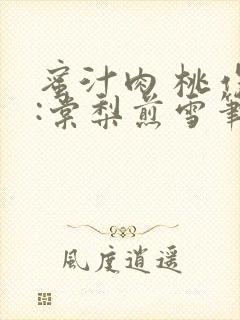 蜜汁肉桃作
:棠梨煎雪筆
風度逍遥